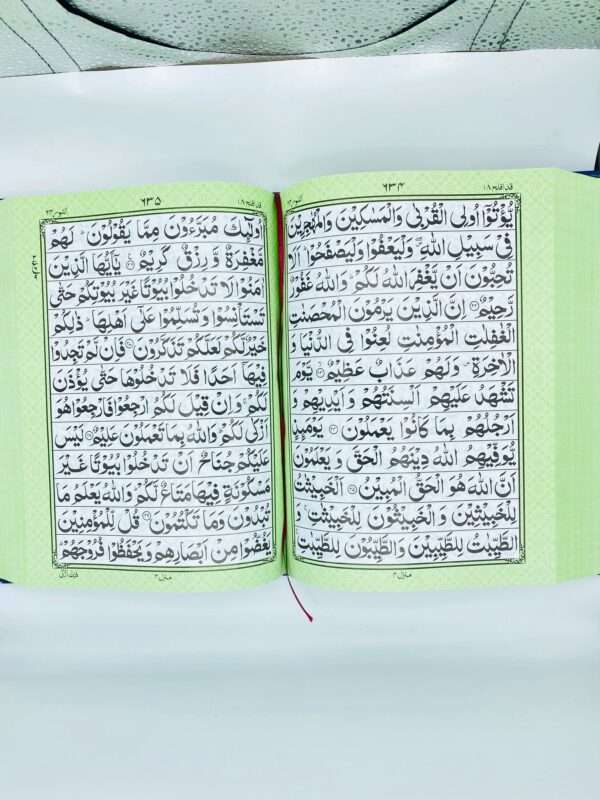 قد افلح ۱۸
۶۳۴
النور ۲۴
يُّؤْتُوْۤا اُولِی الْقُرْبٰی وَالْمَسٰكِيْنَ وَالْمُهٰجِرِيْنَ
فِیْ سَبِيْلِ اللّٰهِ ۖ وَلْيَعْفُوْا وَلْيَصْفَحُوْا ؕ اَلَا
تُحِبُّوْنَ اَنْ يَّغْفِرَ اللّٰهُ لَكُمْ ؕ وَاللّٰهُ غَفُوْرٌ
رَّحِيْمٌ ۝۲۲ اِنَّ الَّذِيْنَ يَرْمُوْنَ الْمُحْصَنٰتِ
الْغٰفِلٰتِ الْمُؤْمِنٰتِ لُعِنُوْا فِی الدُّنْيَا وَ
الْاٰخِرَةِ ۪ وَلَهُمْ عَذَابٌ عَظِيْمٌ ۝۲۳ يَّوْمَ
تَشْهَدُ عَلَيْهِمْ اَلْسِنَتُهُمْ وَ اَيْدِيْهِمْ وَ
اَرْجُلُهُمْ بِمَا كَانُوْا يَعْمَلُوْنَ ۝۲۴ يَوْمَئِذٍ
يُّوَفِّيْهِمُ اللّٰهُ دِيْنَهُمُ الْحَقَّ وَ يَعْلَمُوْنَ
اَنَّ اللّٰهَ هُوَ الْحَقُّ الْمُبِيْنُ ۝۲۵ اَلْخَبِيْثٰتُ
لِلْخَبِيْثِيْنَ وَ الْخَبِيْثُوْنَ لِلْخَبِيْثٰتِ ۚ وَ
الطَّيِّبٰتُ لِلطَّيِّبِيْنَ وَالطَّيِّبُوْنَ لِلطَّيِّبٰتِ ۚ
منزل ۴
قد افلح ۱۸
۶۳۵
النور ۲۴
اُولٰٓئِكَ مُبَرَّءُوْنَ مِمَّا يَقُوْلُوْنَ ؕ لَهُمْ
مَّغْفِرَةٌ وَّ رِزْقٌ كَرِيْمٌ ۝۲۶ يٰۤاَيُّهَا الَّذِيْنَ
اٰمَنُوْا لَا تَدْخُلُوْا بُيُوْتًا غَيْرَ بُيُوْتِكُمْ حَتّٰی
تَسْتَاْنِسُوْا وَ تُسَلِّمُوْا عَلٰۤی اَهْلِهَا ؕ ذٰلِكُمْ
خَيْرٌ لَّكُمْ لَعَلَّكُمْ تَذَكَّرُوْنَ ۝۲۷ فَاِنْ لَّمْ تَجِدُوْا
فِيْهَاۤ اَحَدًا فَلَا تَدْخُلُوْهَا حَتّٰی يُؤْذَنَ
لَكُمْ ۚ وَ اِنْ قِيْلَ لَكُمُ ارْجِعُوْا فَارْجِعُوْا هُوَ
اَزْكٰی لَكُمْ ؕ وَاللّٰهُ بِمَا تَعْمَلُوْنَ عَلِيْمٌ ۝۲۸ لَيْسَ
عَلَيْكُمْ جُنَاحٌ اَنْ تَدْخُلُوْا بُيُوْتًا غَيْرَ
مَسْكُوْنَةٍ فِيْهَا مَتَاعٌ لَّكُمْ ؕ وَاللّٰهُ يَعْلَمُ مَا
تُبْدُوْنَ وَمَا تَكْتُمُوْنَ ۝۲۹ قُلْ لِّلْمُؤْمِنِيْنَ
يَغُضُّوْا مِنْ اَبْصَارِهِمْ وَ يَحْفَظُوْا فُرُوْجَهُمْ ؕ
منزل ۴